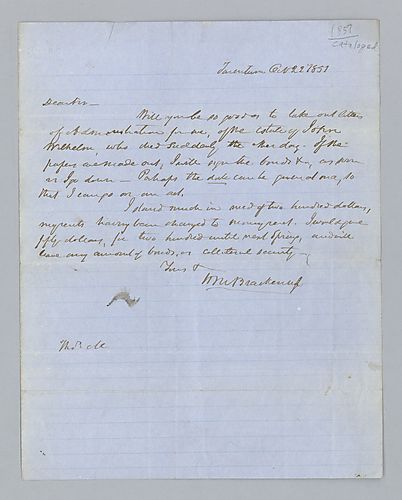 1857
Cataloged
Tarentum Oct 22 1857
Dear Sir
Will you be so good as to take out letters
of Administration for me, of the estate of John
Wilhelm who died suddenly the other day. If the
papers are made out, I will sign the bonds &c, as soon
as I go down — Perhaps the date can be
that I can go on and act.
I stand much in need of two hundred dollars,
my rents having been changed to
fifty dollars, for two hundred until next Spring, and will
leave any amount of bonds, as collateral security —
Yours &
HM Brackenridge